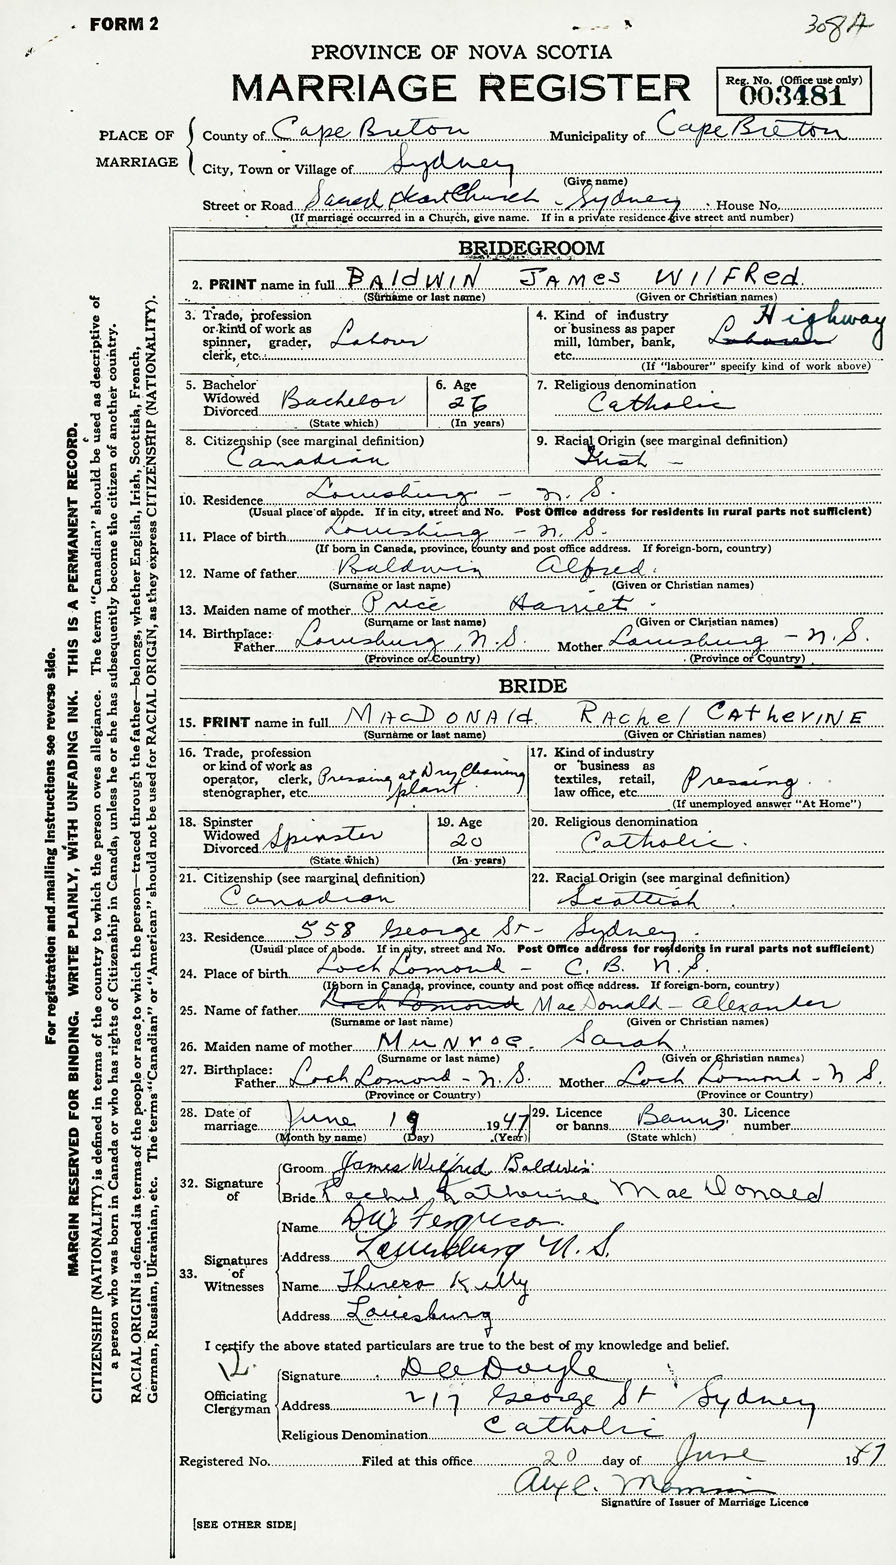 FORM 2
308A
PROVINCE OF NOVA SCOTIA
MARRIAGE REGISTER
Reg. No. (Office use only)
003481
PLACE OF MARRIAGE
County of Cape Breton Municipality of Cape Breton
City, Town or Village of Sydney
(Give name)
Street or Road Sacred Heart Church - Sydney House No.
(If marriage occurred in a Church, give name. If in a private residence give street and number)
BRIDEGROOM
2. PRINT name in full BAldWIN JAMES WIlFRed.
(Surname or last name) (Given or Christian names)
3. Trade, profession or kind of work as spinner, grader, clerk, etc. Labour
4. Kind of industry or business as paper mill, lumber, bank, etc. Labourer Highway
(If "labourer" specify kind of work above)
5. Bachelor Widowed Divorced Bachelor
(State which)
6. Age 26
(In years)
7. Religious denomination
Catholic
8. Citizenship (see marginal definition)
Canadian
9. Racial Origin (see marginal definition)
Irish -
10. Residence Louisburg - N. S.
(Usual place of abode. If in city, street and No. Post Office address for residents in rural parts not sufficient)
11. Place of birth Louisburg - N. S.
(If born in Canada, province, county and post office address. If foreign-born, country)
12. Name of father Baldwin Alfred.
(Surname or last name) (Given or Christian names)
13. Maiden name of mother Price Harriet.
(Surname or last name) (Given or Christian names)
14. Birthplace:
Father Louisburg, N.S. Mother Louisburg - N.S.
(Province or Country) (Province or Country)
BRIDE
15. PRINT name in full MACDONAld. RACHel CATHeRINE
(Surname or last name) (Given or Christian names)
16. Trade, profession or kind of work as operator, clerk, stenographer, etc. Pressing at Dry Cleaning plant.
17. Kind of industry or business as textiles, retail, law office, etc. Pressing.
(If unemployed answer "At Home")
18. Spinster Widowed Divorced Spinster
(State which)
19. Age 20
(In years)
20. Religious denomination
Catholic.
21. Citizenship (see marginal definition)
Canadian
22. Racial Origin (see marginal definition)
Scottish.
23. Residence 558 George St - Sydney.
(Usual place of abode. If in city, street and No. Post Office address for residents in rural parts not sufficient)
24. Place of birth Loch Lomond - C. B. N.S.
(If born in Canada, province, county and post office address. If foreign-born, country)
25. Name of father Loch Lomond MacDonald - Alexander
(Surname or last name) (Given or Christian names)
26. Maiden name of mother Munroe. Sarah.
(Surname or last name) (Given or Christian names)
27. Birthplace:
Father Loch Lomond - N.S. Mother Loch Lomond - N S
(Province or Country) (Province or Country)
28. Date of marriage June 19 1947
(Month by name) (Day) (Year)
29. Licence or banns Banns
(State which)
30. Licence number
32. Signature of
Groom James Wilfred Baldwin
Bride Rachel Katherine MacDonald
33. Signatures of Witnesses
Name DW Ferguson
Address Louisburg N.S.
Name Theresa Kelly
Address Louisburg
I certify the above stated particulars are true to the best of my knowledge and belief.
Officiating Clergyman
Signature D A Doyle
Address 217 George St Sydney
Religious Denomination Catholic
Registered No. Filed at this office 20 day of June 1947
Signature of Issuer of Marriage Licence
[SEE OTHER SIDE]
For registration and mailing instructions see reverse side.
MARGIN RESERVED FOR BINDING. WRITE PLAINLY, WITH UNFADING INK. THIS IS A PERMANENT RECORD.
CITIZENSHIP (NATIONALITY) is defined in terms of the country to which the person owes allegiance. The term "Canadian" should be used as descriptive of
a person who was born in Canada or who has rights of Citizenship in Canada, unless he or she has subsequently become the citizen of another country.
RACIAL ORIGIN is defined in terms of the people or race to which the person—traced through the father—belongs, whether English, Irish, Scottish, French,
German, Russian, Ukrainian, etc. The terms "Canadian" or "American" should not be used for RACIAL ORIGIN, as they express CITIZENSHIP (NATIONALITY).